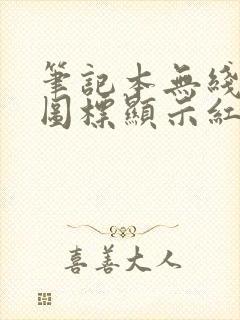 筆記本無綫
圖標顯示紅
喜善大人